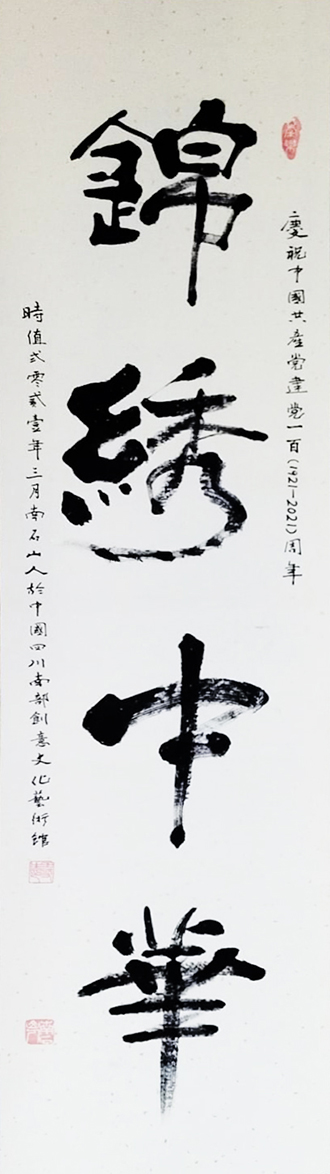 慶祝中國共產党建党一百(1921—2021)周年
錦綉中華
時值弍零貳壹年三月南石山人於中國四川南部創意文化藝術館